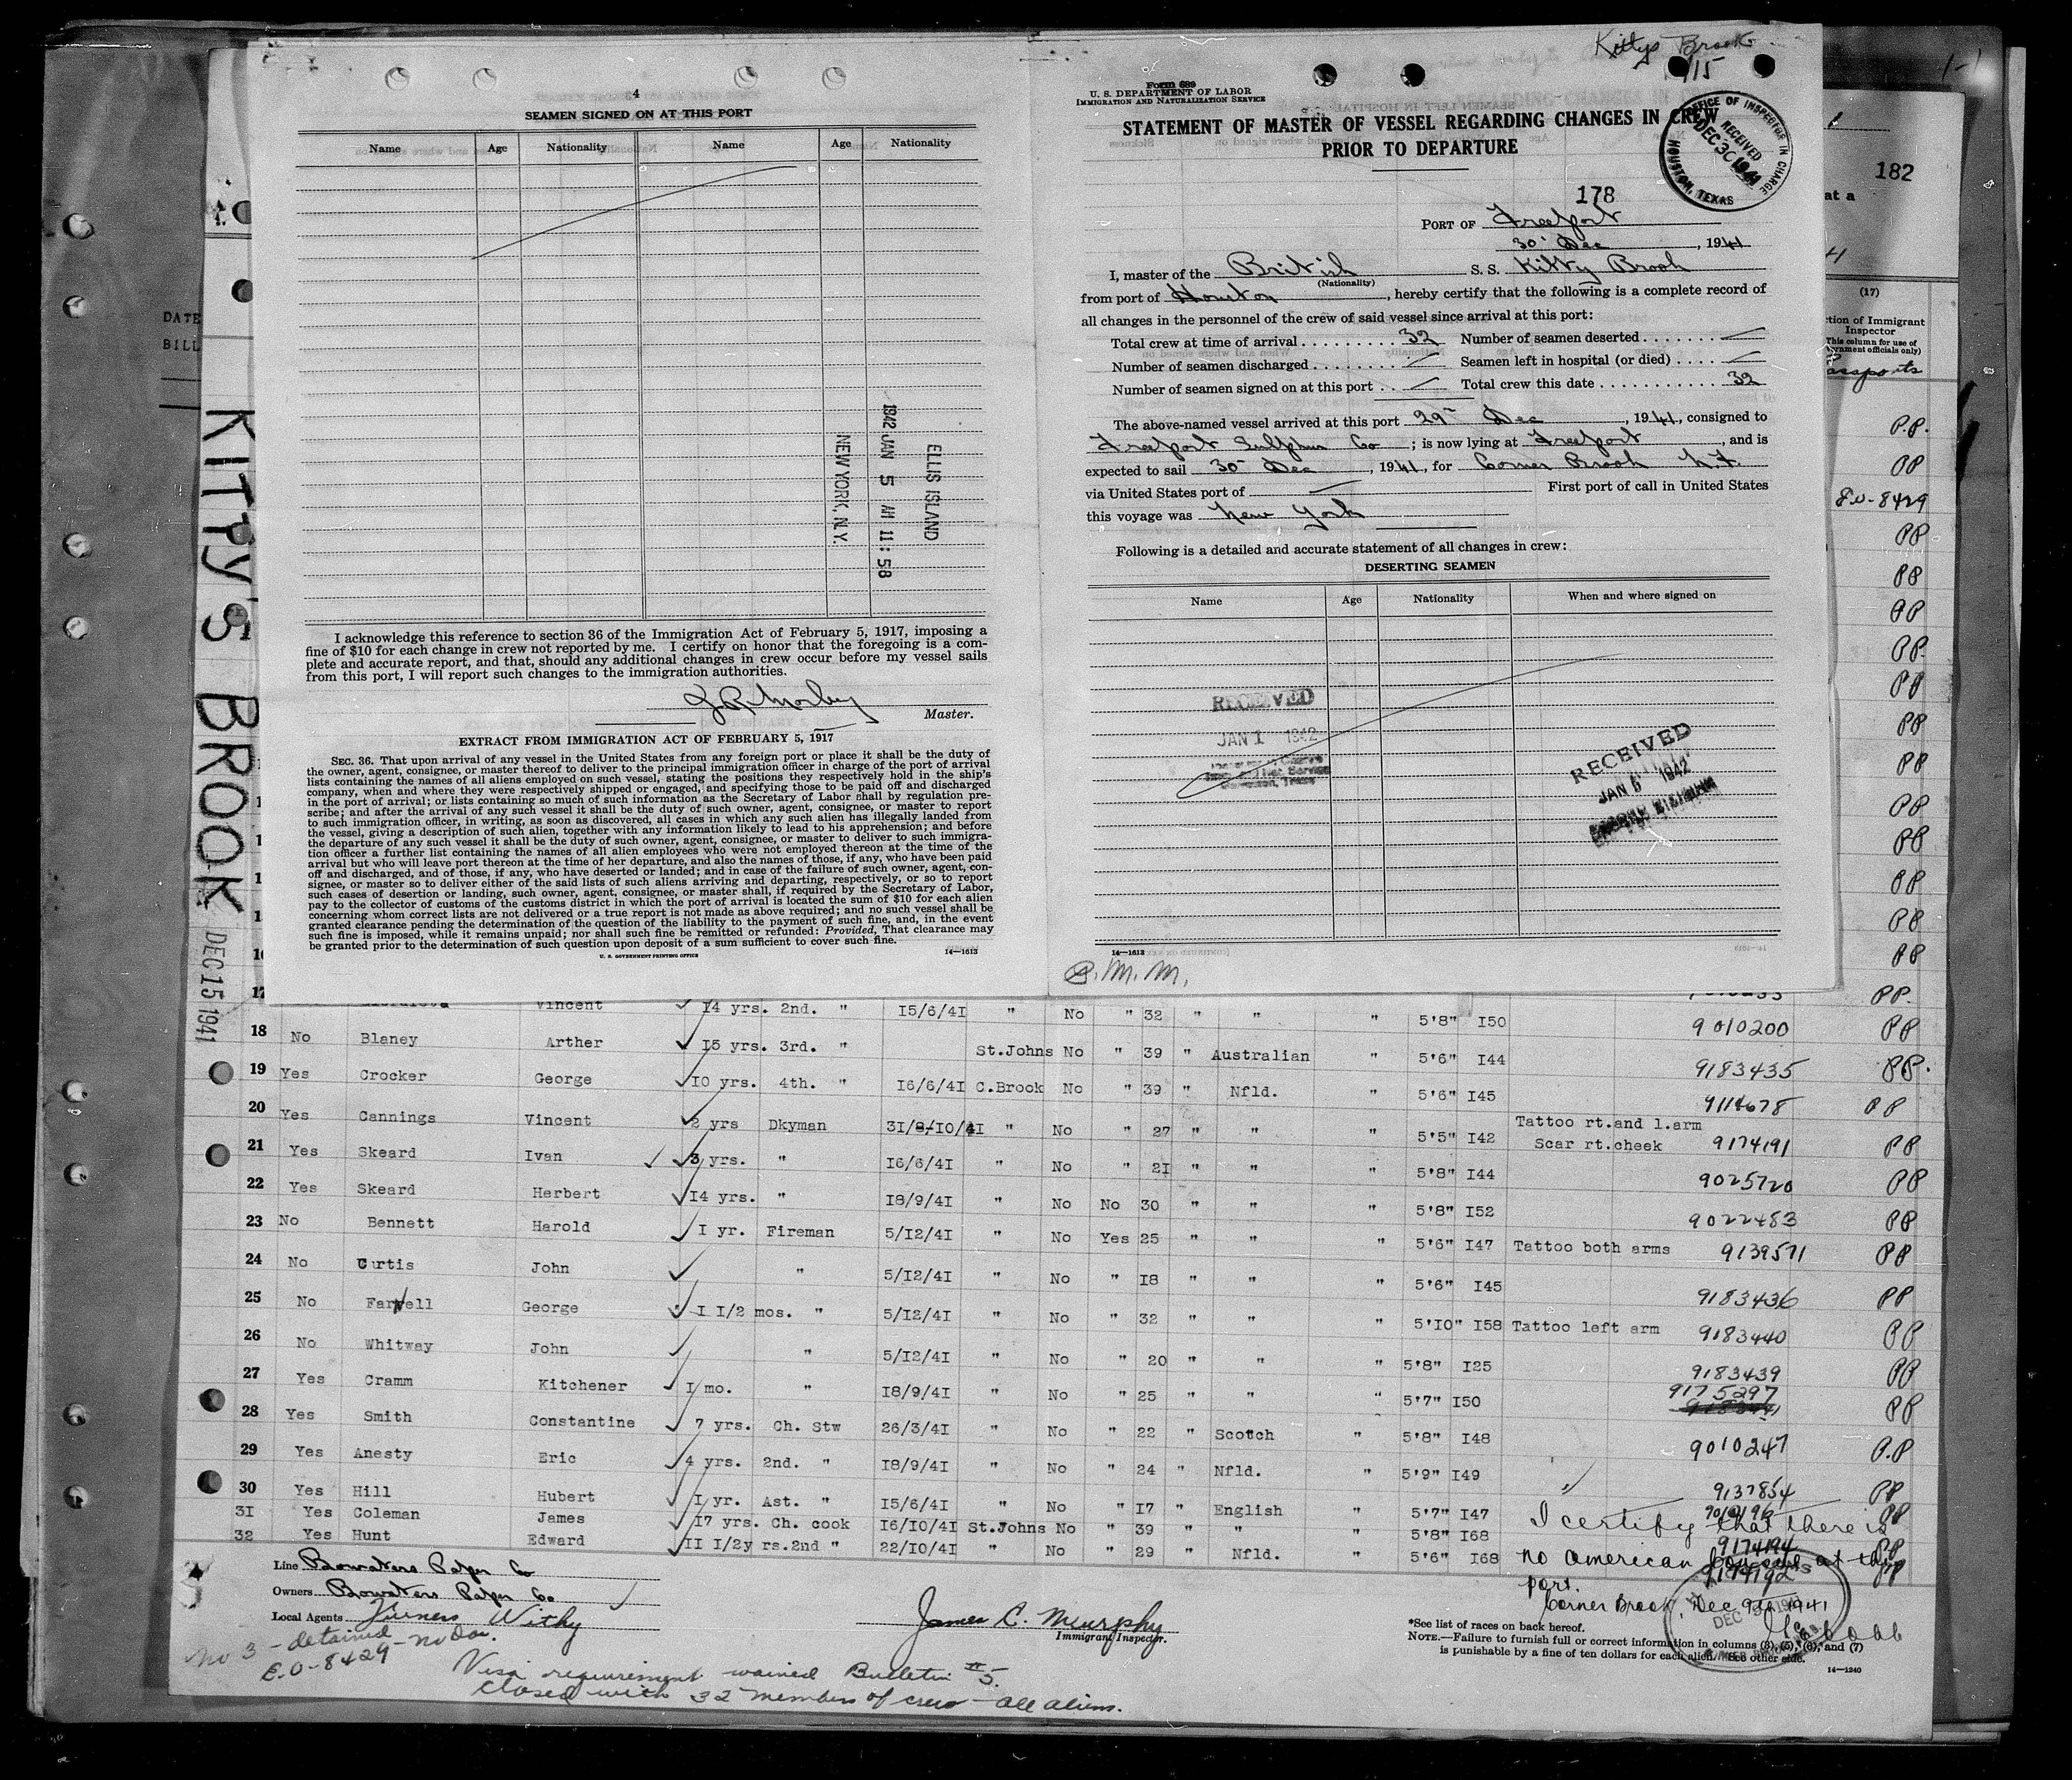 Kittys Brook
1-1
4
SEAMEN SIGNED ON AT THIS PORT
Name Age Nationality Name Age Nationality
ELLIS ISLAND
1942 JAN 5 AM 11:58
NEW YORK, N.Y.
I acknowledge this reference to section 36 of the Immigration Act of February 5, 1917, imposing a
fine of $10 for each change in crew not reported by me. I certify on honor that the foregoing is a com-
plete and accurate report, and that, should any additional changes in crew occur before my vessel sails
from this port, I will report such changes to the immigration authorities.
Master.
EXTRACT FROM IMMIGRATION ACT OF FEBRUARY 5, 1917
SEC. 36. That upon arrival of any vessel in the United States from any foreign port or place it shall be the duty of
the owner, agent, consignee, or master thereof to deliver to the principal immigration officer in charge of the port of arrival
lists containing the names of all aliens employed on such vessel, stating the positions they respectively hold in the ship's
company, when and where they were respectively shipped or engaged, and specifying those to be paid off and discharged
in the port of arrival; or lists containing so much of such information as the Secretary of Labor shall by regulation pre-
scribe; and after the arrival of any such vessel it shall be the duty of such owner, agent, consignee, or master to report
to such immigration officer, in writing, as soon as discovered, all cases in which any such alien has illegally landed from
the vessel, giving a description of such alien, together with any information likely to lead to his apprehension; and before
the departure of any such vessel it shall be the duty of such owner, agent, consignee, or master to deliver to such immigra-
tion officer a further list containing the names of all alien employees who were not employed thereon at the time of the
arrival but who will leave port thereon at the time of her departure, and also the names of those, if any, who have been paid
off and discharged, and of those, if any, who have deserted or landed; and in case of the failure of such owner, agent, con-
signee, or master so to deliver either of the said lists of such aliens arriving and departing, respectively, or so to report
such cases of desertion or landing, such owner, agent, consignee, or master shall, if required by the Secretary of Labor,
pay to the collector of customs of the customs district in which the port of arrival is located the sum of $10 for each alien
concerning whom correct lists are not delivered or a true report is not made as above required; and no such vessel shall be
granted clearance pending the determination of the question of the liability to the payment of such fine, and, in the event
such fine is imposed, while it remains unpaid; nor shall such fine be remitted or refunded: Provided, That clearance may
be granted prior to the determination of such question upon deposit of a sum sufficient to cover such fine.
U. S. GOVERNMENT PRINTING OFFICE 14—1613
Form 689
U. S. DEPARTMENT OF LABOR
IMMIGRATION AND NATURALIZATION SERVICE
STATEMENT OF MASTER OF VESSEL REGARDING CHANGES IN CREW
PRIOR TO DEPARTURE
OFFICE OF INSPECTOR IN CHARGE
RECEIVED
DEC 30 1941
HOUSTON, TEXAS
178
PORT OF Freeport
30 Dec, 1941
I, master of the British S. S. Kitty Brook
(Nationality)
from port of Houston, hereby certify that the following is a complete record of
all changes in the personnel of the crew of said vessel since arrival at this port:
Total crew at time of arrival 32 Number of seamen deserted
Number of seamen discharged Seamen left in hospital (or died)
Number of seamen signed on at this port Total crew this date 32
The above-named vessel arrived at this port 29 Dec, 1941, consigned to
Freeport Sulphur Co; is now lying at Freeport, and is
expected to sail 30 Dec, 1941, for Corner Brook N.F.
via United States port of First port of call in United States
this voyage was New York
Following is a detailed and accurate statement of all changes in crew:
DESERTING SEAMEN
Name Age Nationality When and where signed on
RECEIVED
JAN 1 1942
RECEIVED
JAN 5 1942
14—1613
P. M. M.
182
at a
(17)
ction of Immigrant
Inspector
(This column for use of
ernment officials only)
P.P.
PP
E.O-8429
PP
PP
PP
PP.
PP
PP
PP
PP
PP
PP
PP
PP
DATE
BILL
KITTY'S BROOK
DEC 15 1941
17 Vincent 14 yrs. 2nd. " 15/6/41 " No " 32 " " " 5'8" 150 PP.
18 No Blaney Arther 15 yrs. 3rd. " St.Johns No " 39 " Australian " 5'6" 144 9010200 PP
19 Yes Crocker George 10 yrs. 4th. " 16/6/41 C.Brook No " 39 " Nfld. " 5'6" 145 9183435 PP.
20 Yes Cannings Vincent 2 yrs Dkyman 31/8-10/41 " No " 27 " " " 5'5" 142 Tattoo rt.and l.arm Scar rt.cheek 9114678 PP
21 Yes Skeard Ivan 3 yrs. " 16/6/41 " No " 21 " " " 5'8" 144 9174191 PP
22 Yes Skeard Herbert 14 yrs. " 18/9/41 " No No 30 " " " 5'8" 152 9025720 PP
23 No Bennett Harold 1 yr. Fireman 5/12/41 " No Yes 25 " " " 5'6" 147 Tattoo both arms 9022483 PP
24 No Curtis John " 5/12/41 " No " 18 " " " 5'6" 145 9139571 PP
25 No Farwell George 1 1/2 mos. " 5/12/41 " No " 32 " " " 5'10" 158 Tattoo left arm 9183436 PP
26 No Whitway John " 5/12/41 " No " 20 " " " 5'8" 125 9183440 PP
27 Yes Cramm Kitchener 1 mo. " 18/9/41 " No " 25 " " " 5'7" 150 9183439 PP
28 Yes Smith Constantine 7 yrs. Ch. Stw 26/3/41 " No " 22 " Scotch " 5'8" 148 9175297 PP
29 Yes Anesty Eric 4 yrs. 2nd. " 18/9/41 " No " 24 " Nfld. " 5'9" 149 9010247 P.P
30 Yes Hill Hubert 1 yr. Ast. " 15/6/41 " No " 17 " English " 5'7" 147 9137854 PP
31 Yes Coleman James 17 yrs. Ch. cook 16/10/41 St.Johns No " 39 " " " 5'8" 168 PP
32 Yes Hunt Edward 11 1/2y rs.2nd " 22/10/41 " No " 29 " Nfld. " 5'6" 168 9174194 PP
I certify that there is
no American at this
port.
Corner Brook, Dec 9th 1941
Line Bowaters Paper Co
Owners Bowaters Paper Co
Local Agents Furness Withy
James C. Murphy
Immigrant Inspector.
*See list of races on back hereof.
NOTE.—Failure to furnish full or correct information in columns (3), (5), (6), and (7)
is punishable by a fine of ten dollars for each alien. See other side.
14—1240
No 3 - detained
E.O-8429 - no doc.
Visa requirement waived Bulletin #5.
Closed with 32 members of crew - all aliens.